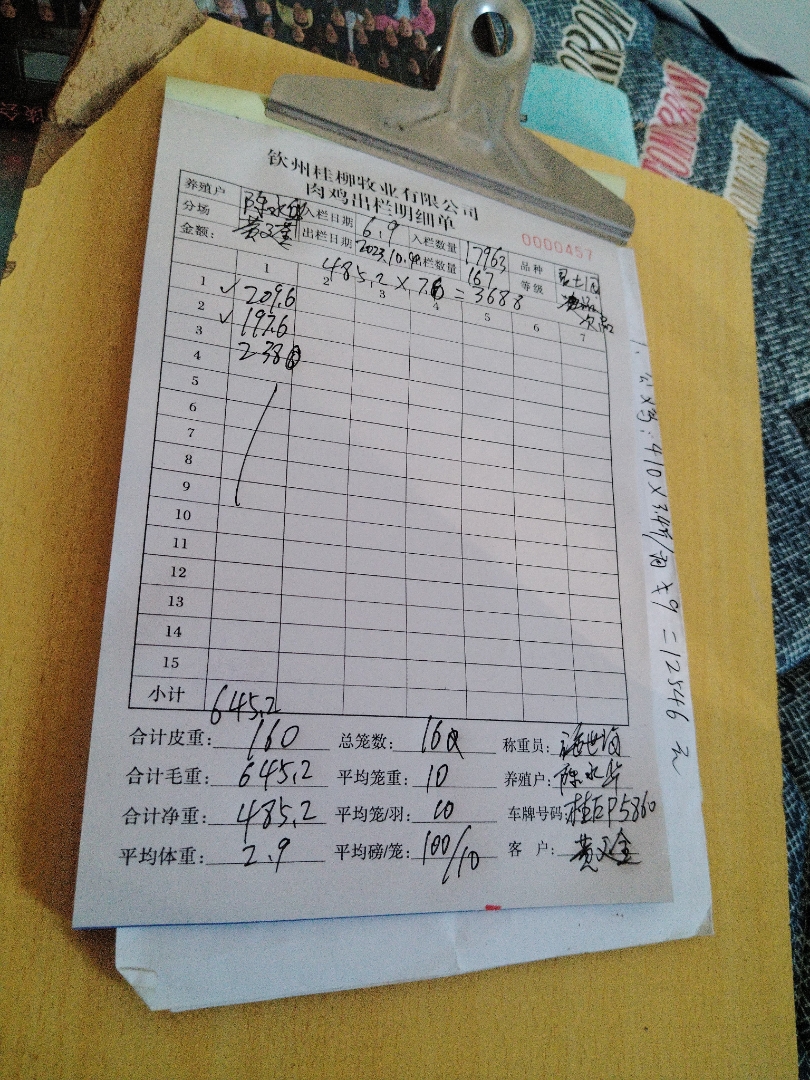 钦州桂柳牧业有限公司
肉鸡出栏明细单
0000457
养殖户 陈水华 入栏日期 6.9 入栏数量 17963 品种
分场 出栏日期 2023.10. 栏数量 167 等级 次品
金额: 485.2×7.6=3688
1 2 3 4 5 6 7
1 ✓209.6
2 ✓197.6
3 238
4
5
6
7
8
9
10
11
12
13
14
15
小计 645.2
合计皮重: 160 总笼数: 16 称重员:
合计毛重: 645.2 平均笼重: 10 养殖户: 陈水华
合计净重: 485.2 平均笼/羽: 10 车牌号码: 桂EP5860
平均体重: 2.9 平均磅/笼: 100/10 客 户: 黄
410×3.4 ×9=12546元